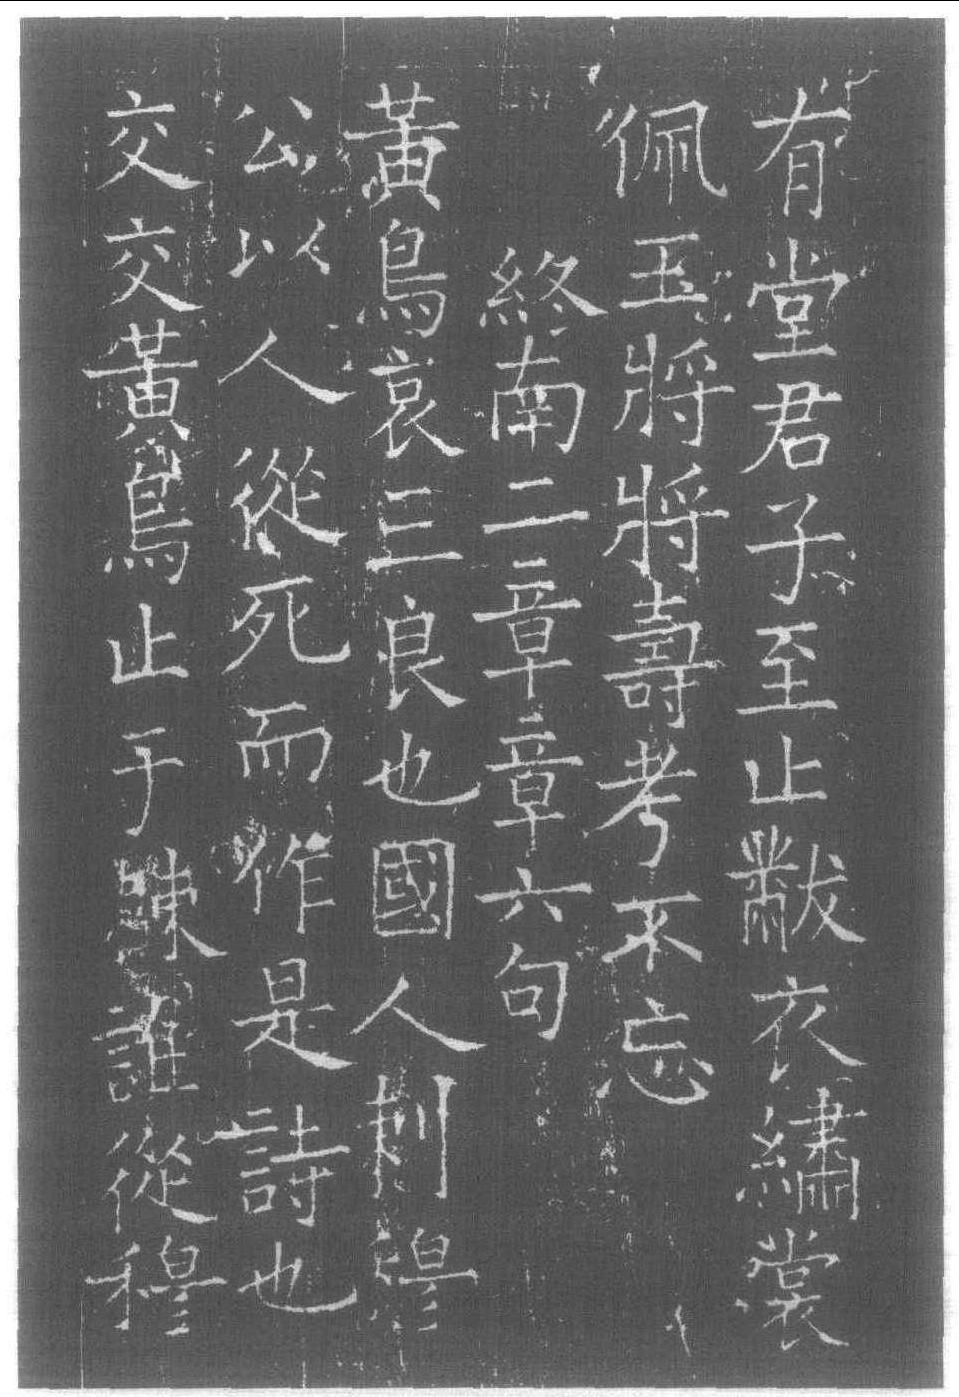 有堂君子至止黻衣繡裳
佩玉將將壽考不忘
終南二章章六句
黃鳥哀三良也國人刺穆
公以人從死而作是詩也
交交黃鳥止于棘誰從穆